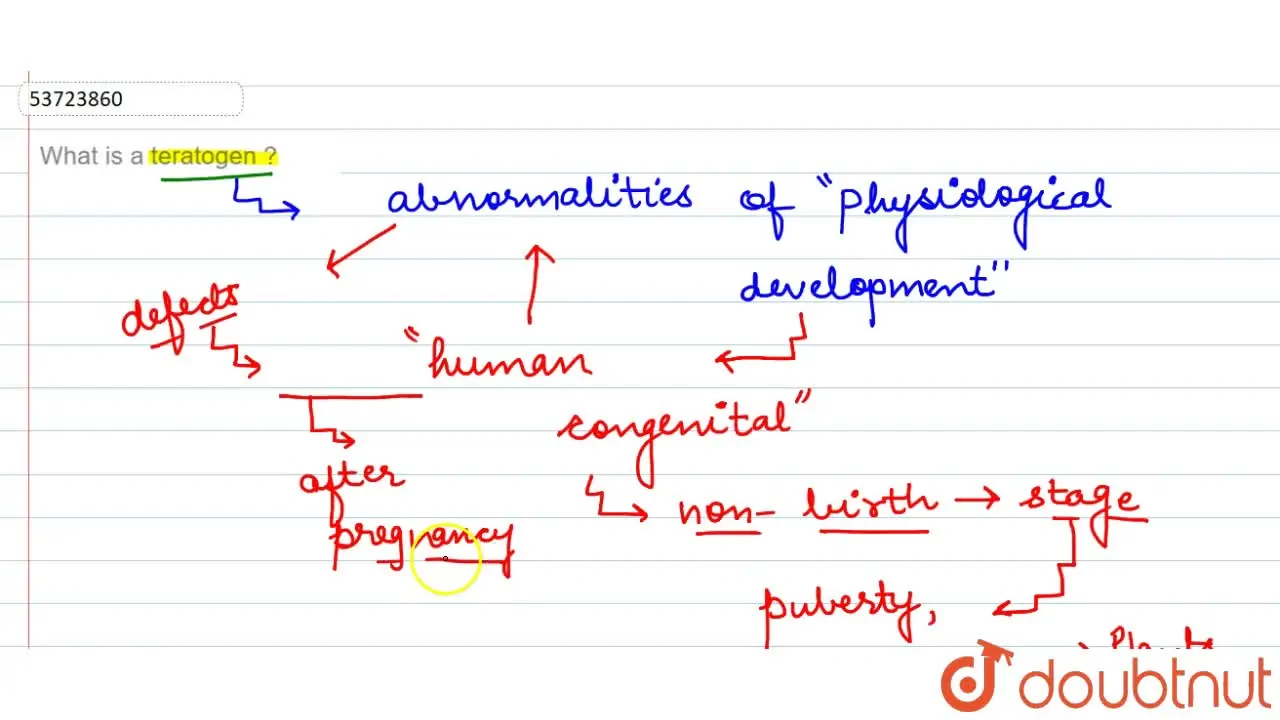 53723860
What is a teratogen ?
abnormalities of "physiological
development"
defects
"human
congenital"
after
pregnancy
non-birth → stage
puberty,
doubtnut